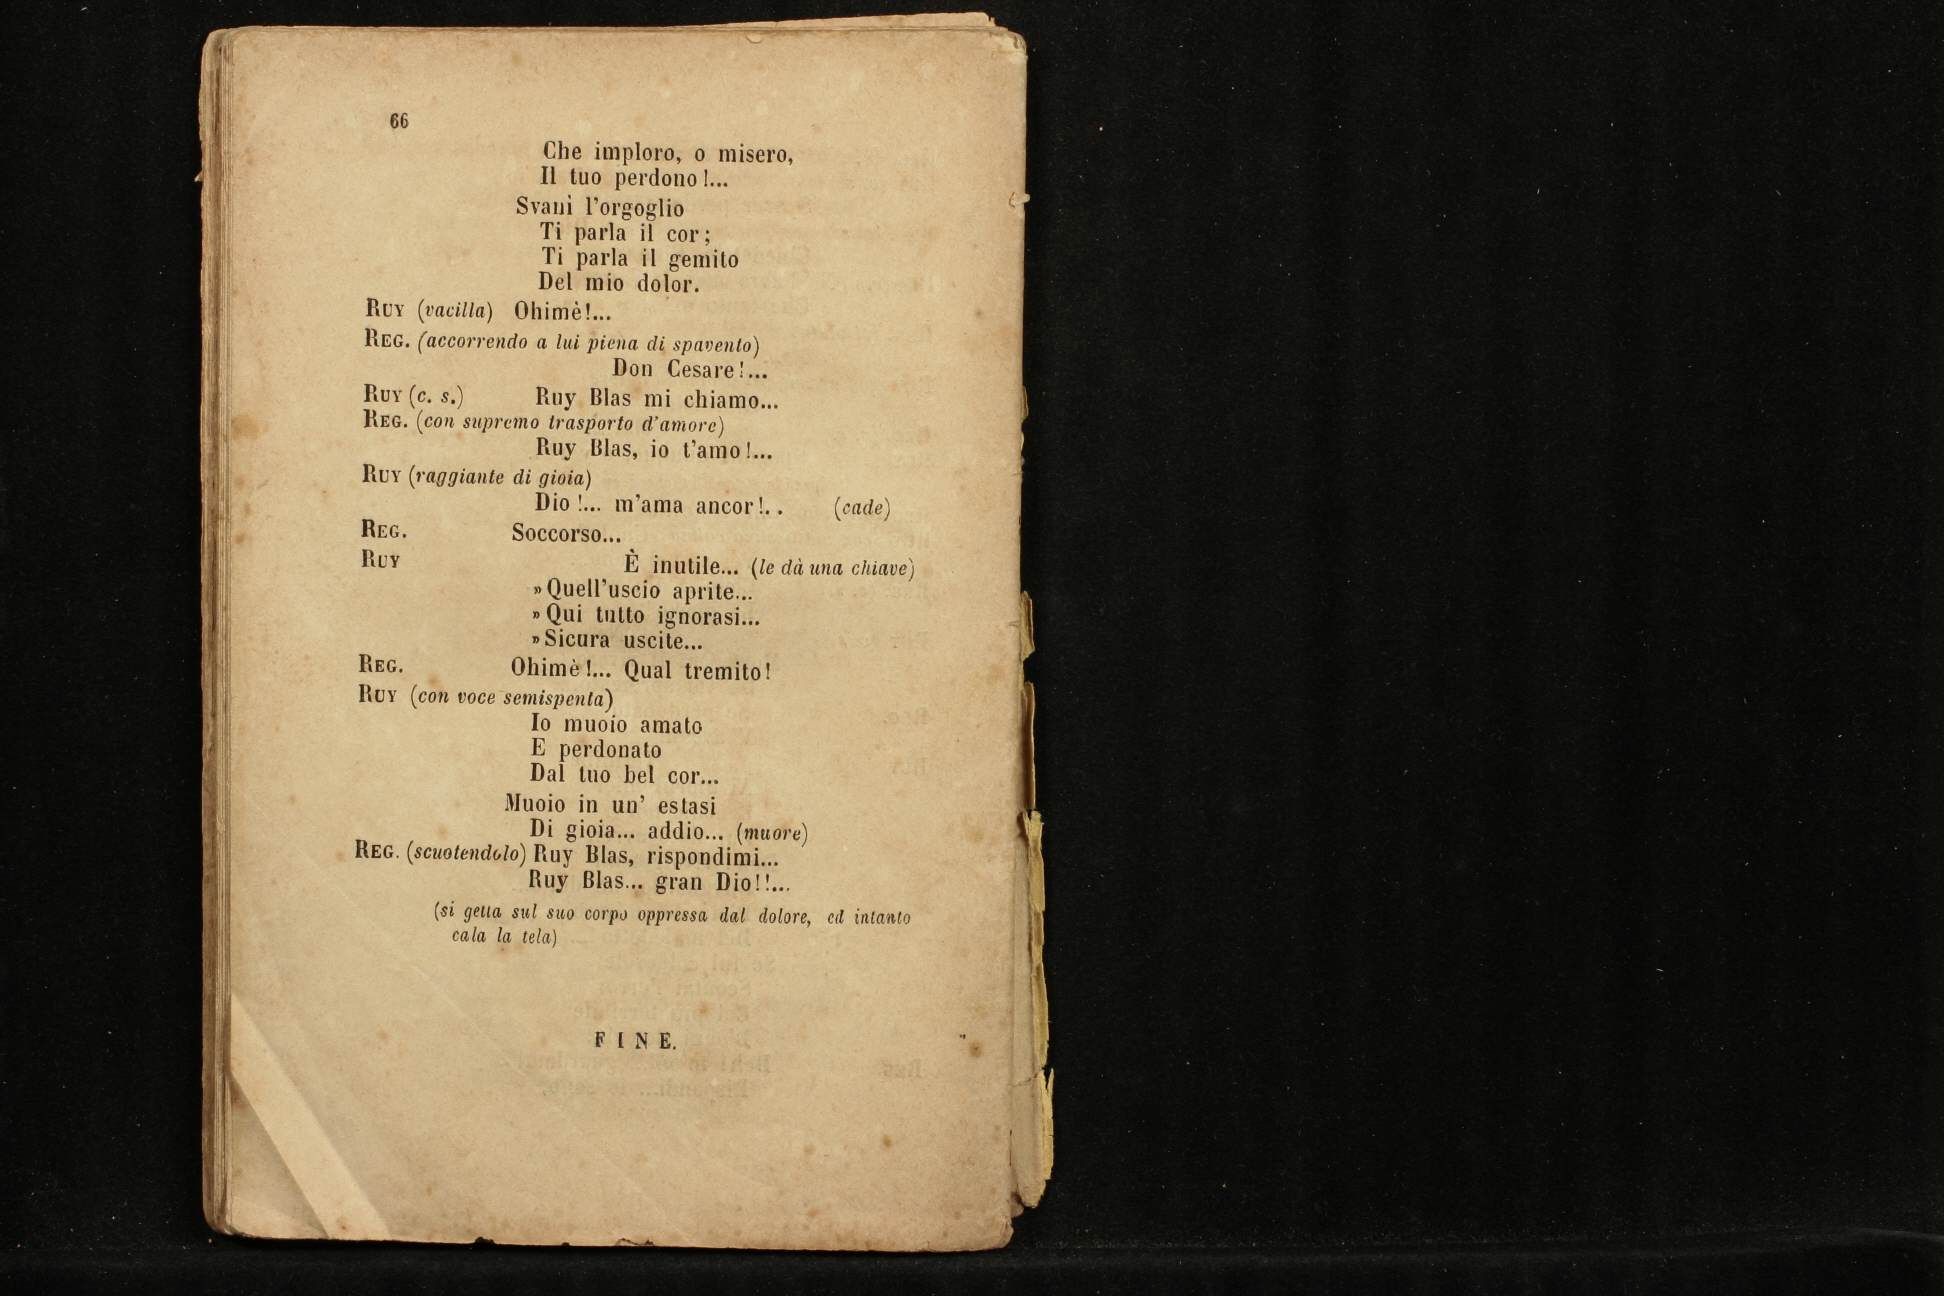 66
Che imploro, o misero,
Il tuo perdono!...
Svanì l'orgoglio
Ti parla il cor;
Ti parla il gemito
Del mio dolor.
RUY (vacilla) Ohimè!...
REG. (accorrendo a lui piena di spavento)
Don Cesare!...
RUY (c. s.) Ruy Blas mi chiamo...
REG. (con supremo trasporto d'amore)
Ruy Blas, io t'amo!...
RUY (raggiante di gioia)
Dio!... m'ama ancor!.. (cade)
REG. Soccorso...
RUY È inutile... (le dà una chiave)
»Quell'uscio aprite...
»Qui tutto ignorasi...
»Sicura uscite...
REG. Ohimè!... Qual tremito!
RUY (con voce semispenta)
Io muoio amato
E perdonato
Dal tuo bel cor...
Muoio in un' estasi
Di gioia... addio... (muore)
REG. (scuotendolo) Ruy Blas, rispondimi...
Ruy Blas... gran Dio!!...
(si getta sul suo corpo oppressa dal dolore, ed intanto
cala la tela)
FINE.